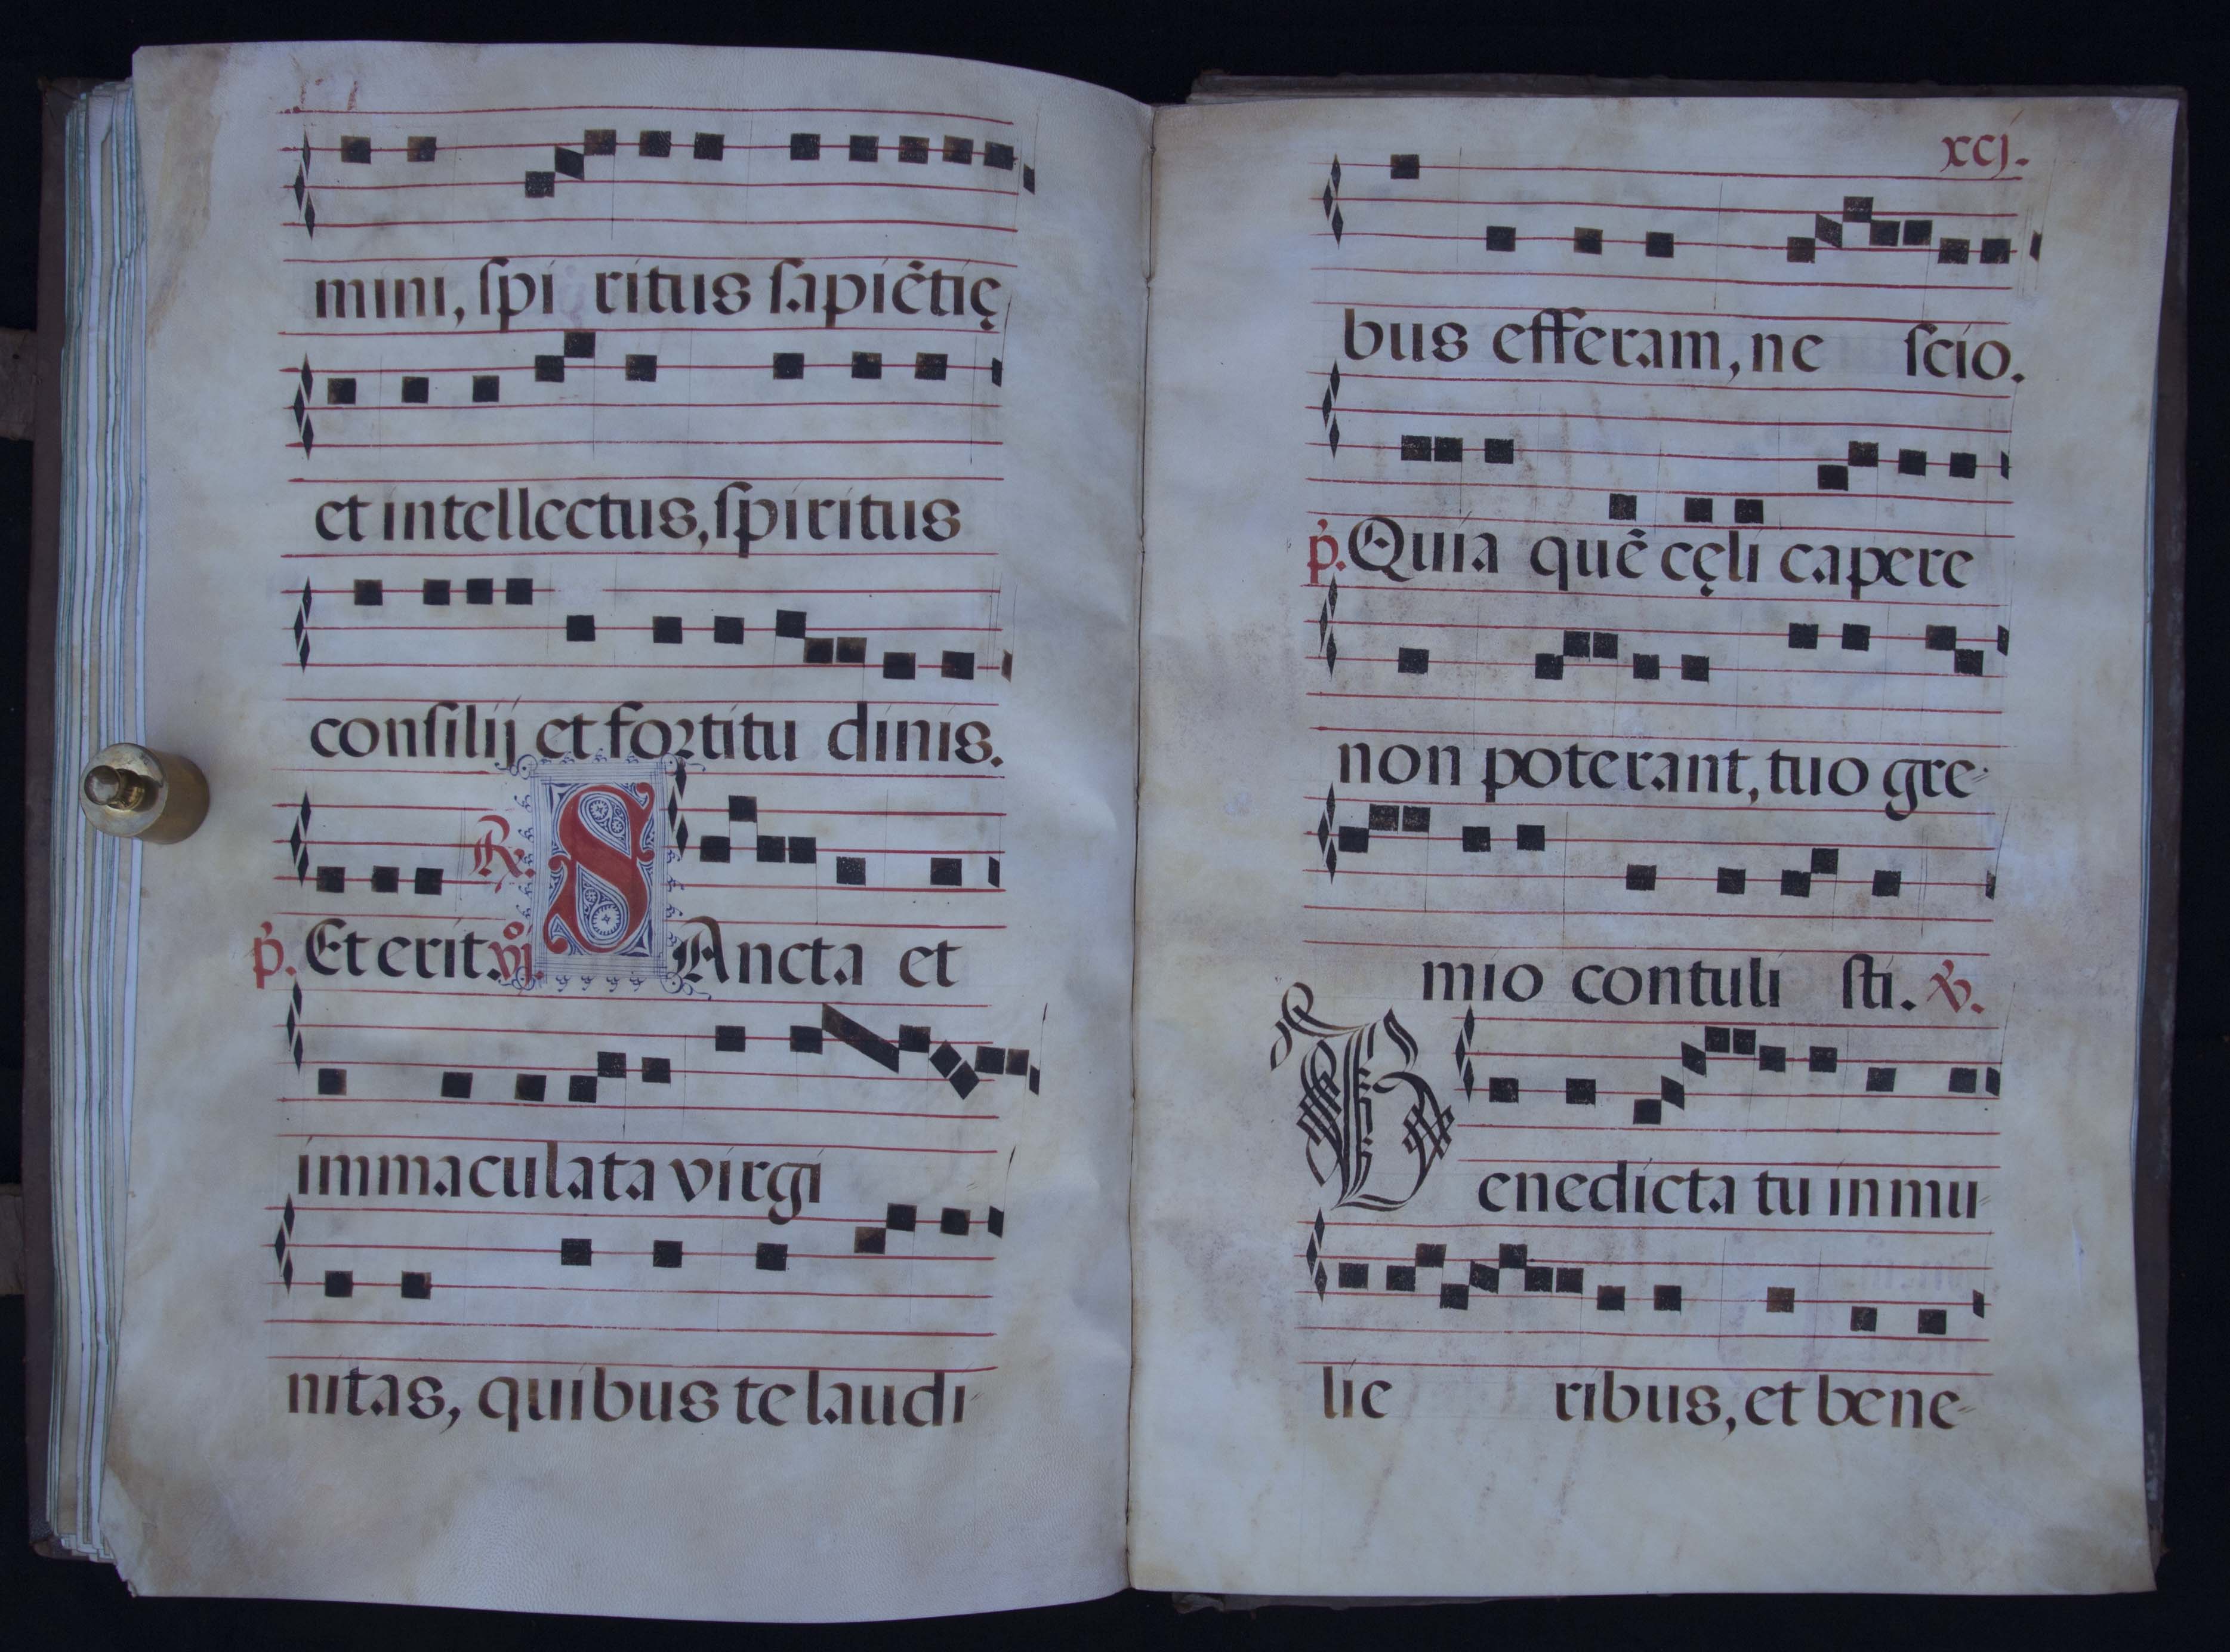 mini, ſpi ritus ſapiẽtię
et intellectus, ſpiritus
conſilij et foꝛtitu dinis.
p̓. Et erit. vjº. ℟. SAncta et
immaculata virgi
nitas, quibus te laudi
xcj.
bus efferam, ne ſcio.
p̓. Quia quẽ cęli capere
non poterant, tuo gre-
mio contuli ſti. ℣.
Benedicta tu in mu-
lie ribus, et bene-